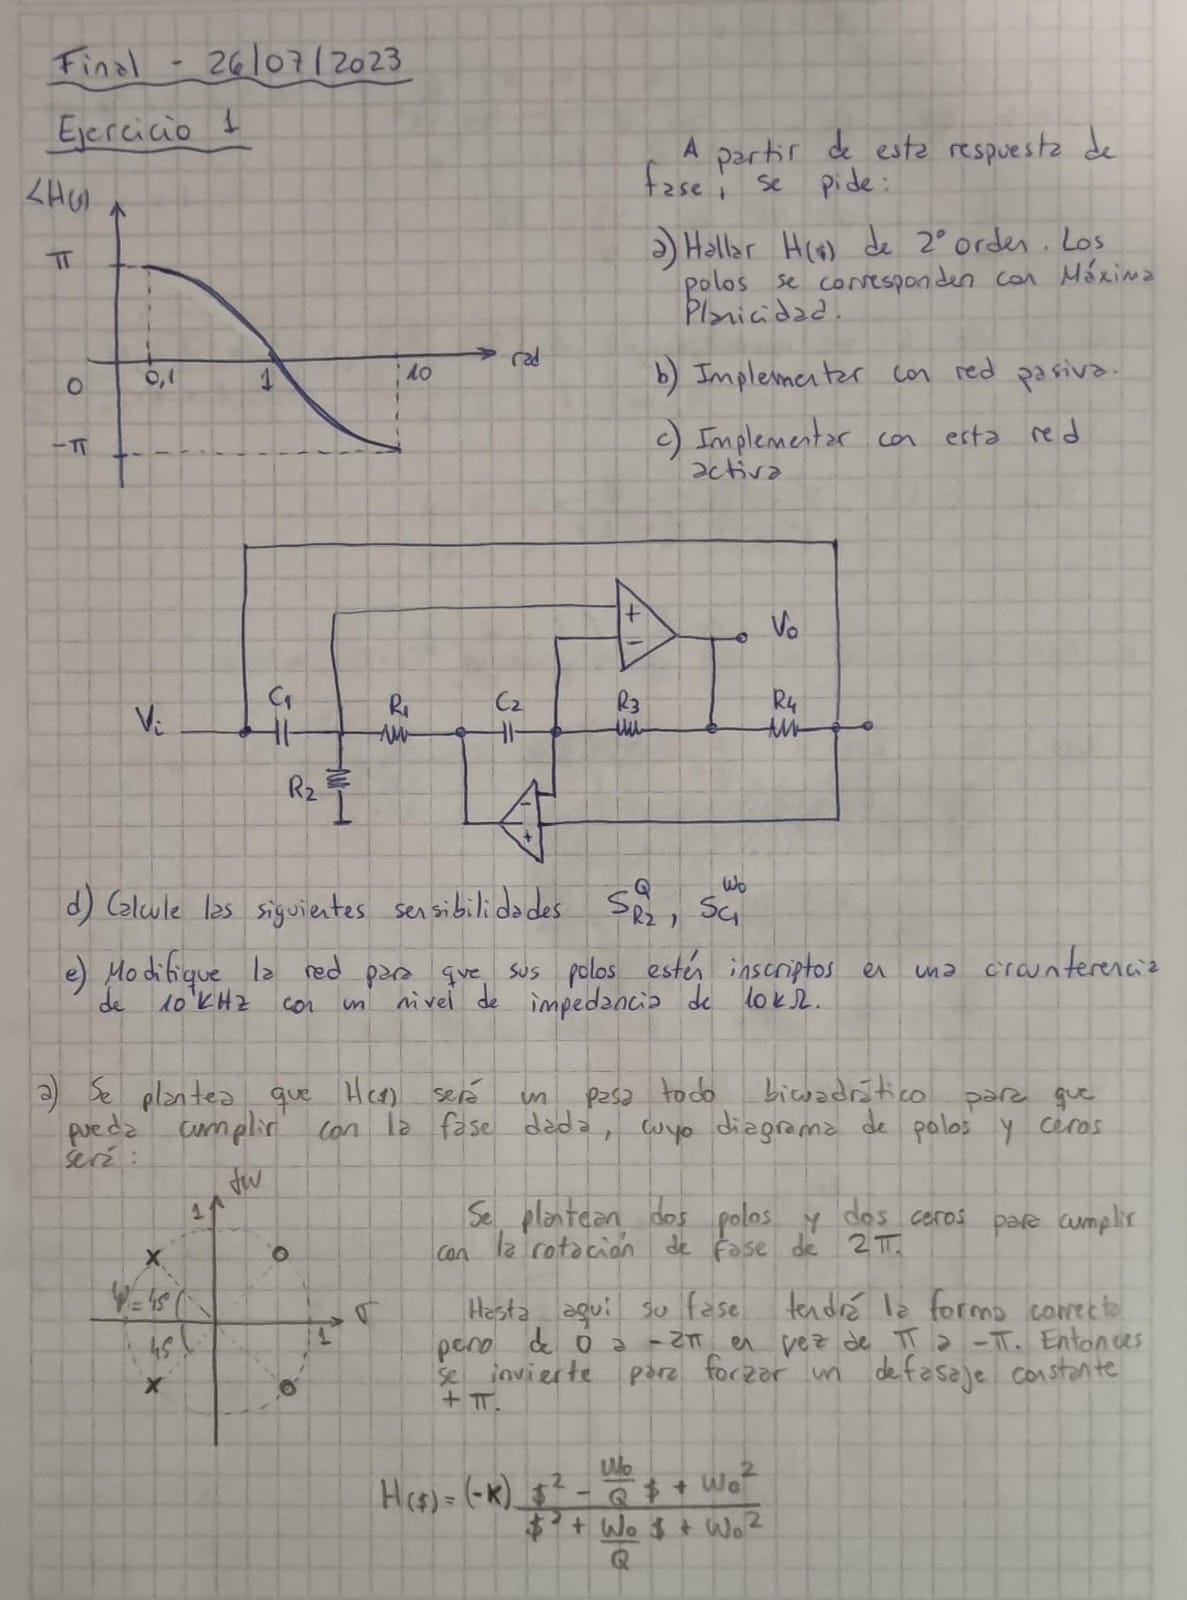 Final - 26/07/2023
Ejercicio 1
∠H($)
π
0
-π
0,1
1
10
rad
A partir de esta respuesta de
fase, se pide:
a) Hallar H($) de 2° orden. Los
polos se corresponden con Máxima
Planicidad.
b) Implementar con red pasiva.
c) Implementar con esta red
activa
Vi
C1
R2
R1
C2
R3
R4
Vo
+
-
-
+
d) Calcule las siguientes sensibilidades S_{R2}^{Q}, S_{C1}^{W0}
e) Modifique la red para que sus polos estén inscriptos en una circunferencia
de 10 KHz con un nivel de impedancia de 10kΩ.
a) Se plantea que H($) será un pasa todo bicuadrático para que
pueda cumplir con la fase dada, cuyo diagrama de polos y ceros
será:
jw
1
σ
1
ψ=45°
45°
Se plantean dos polos y dos ceros para cumplir
con la rotación de fase de 2π.
Hasta aquí su fase tendrá la forma correcta
pero de 0 a -2π en vez de π a -π. Entonces
se invierte para forzar un defasaje constante
+π.
H($) = (-K) ($² - W0/Q $ + W0²) / ($² + W0/Q $ + W0²)